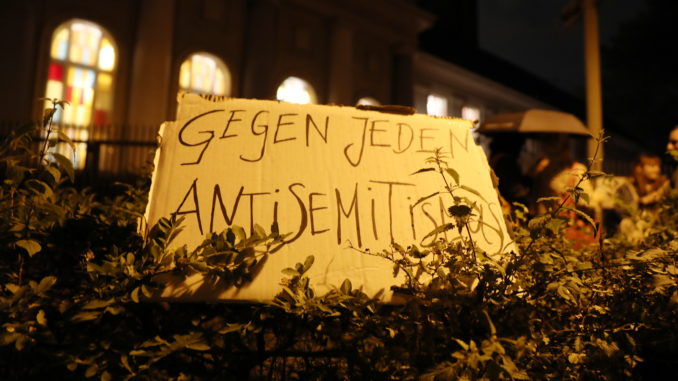 GEGEN JEDEN
ANTISEMITISMUS